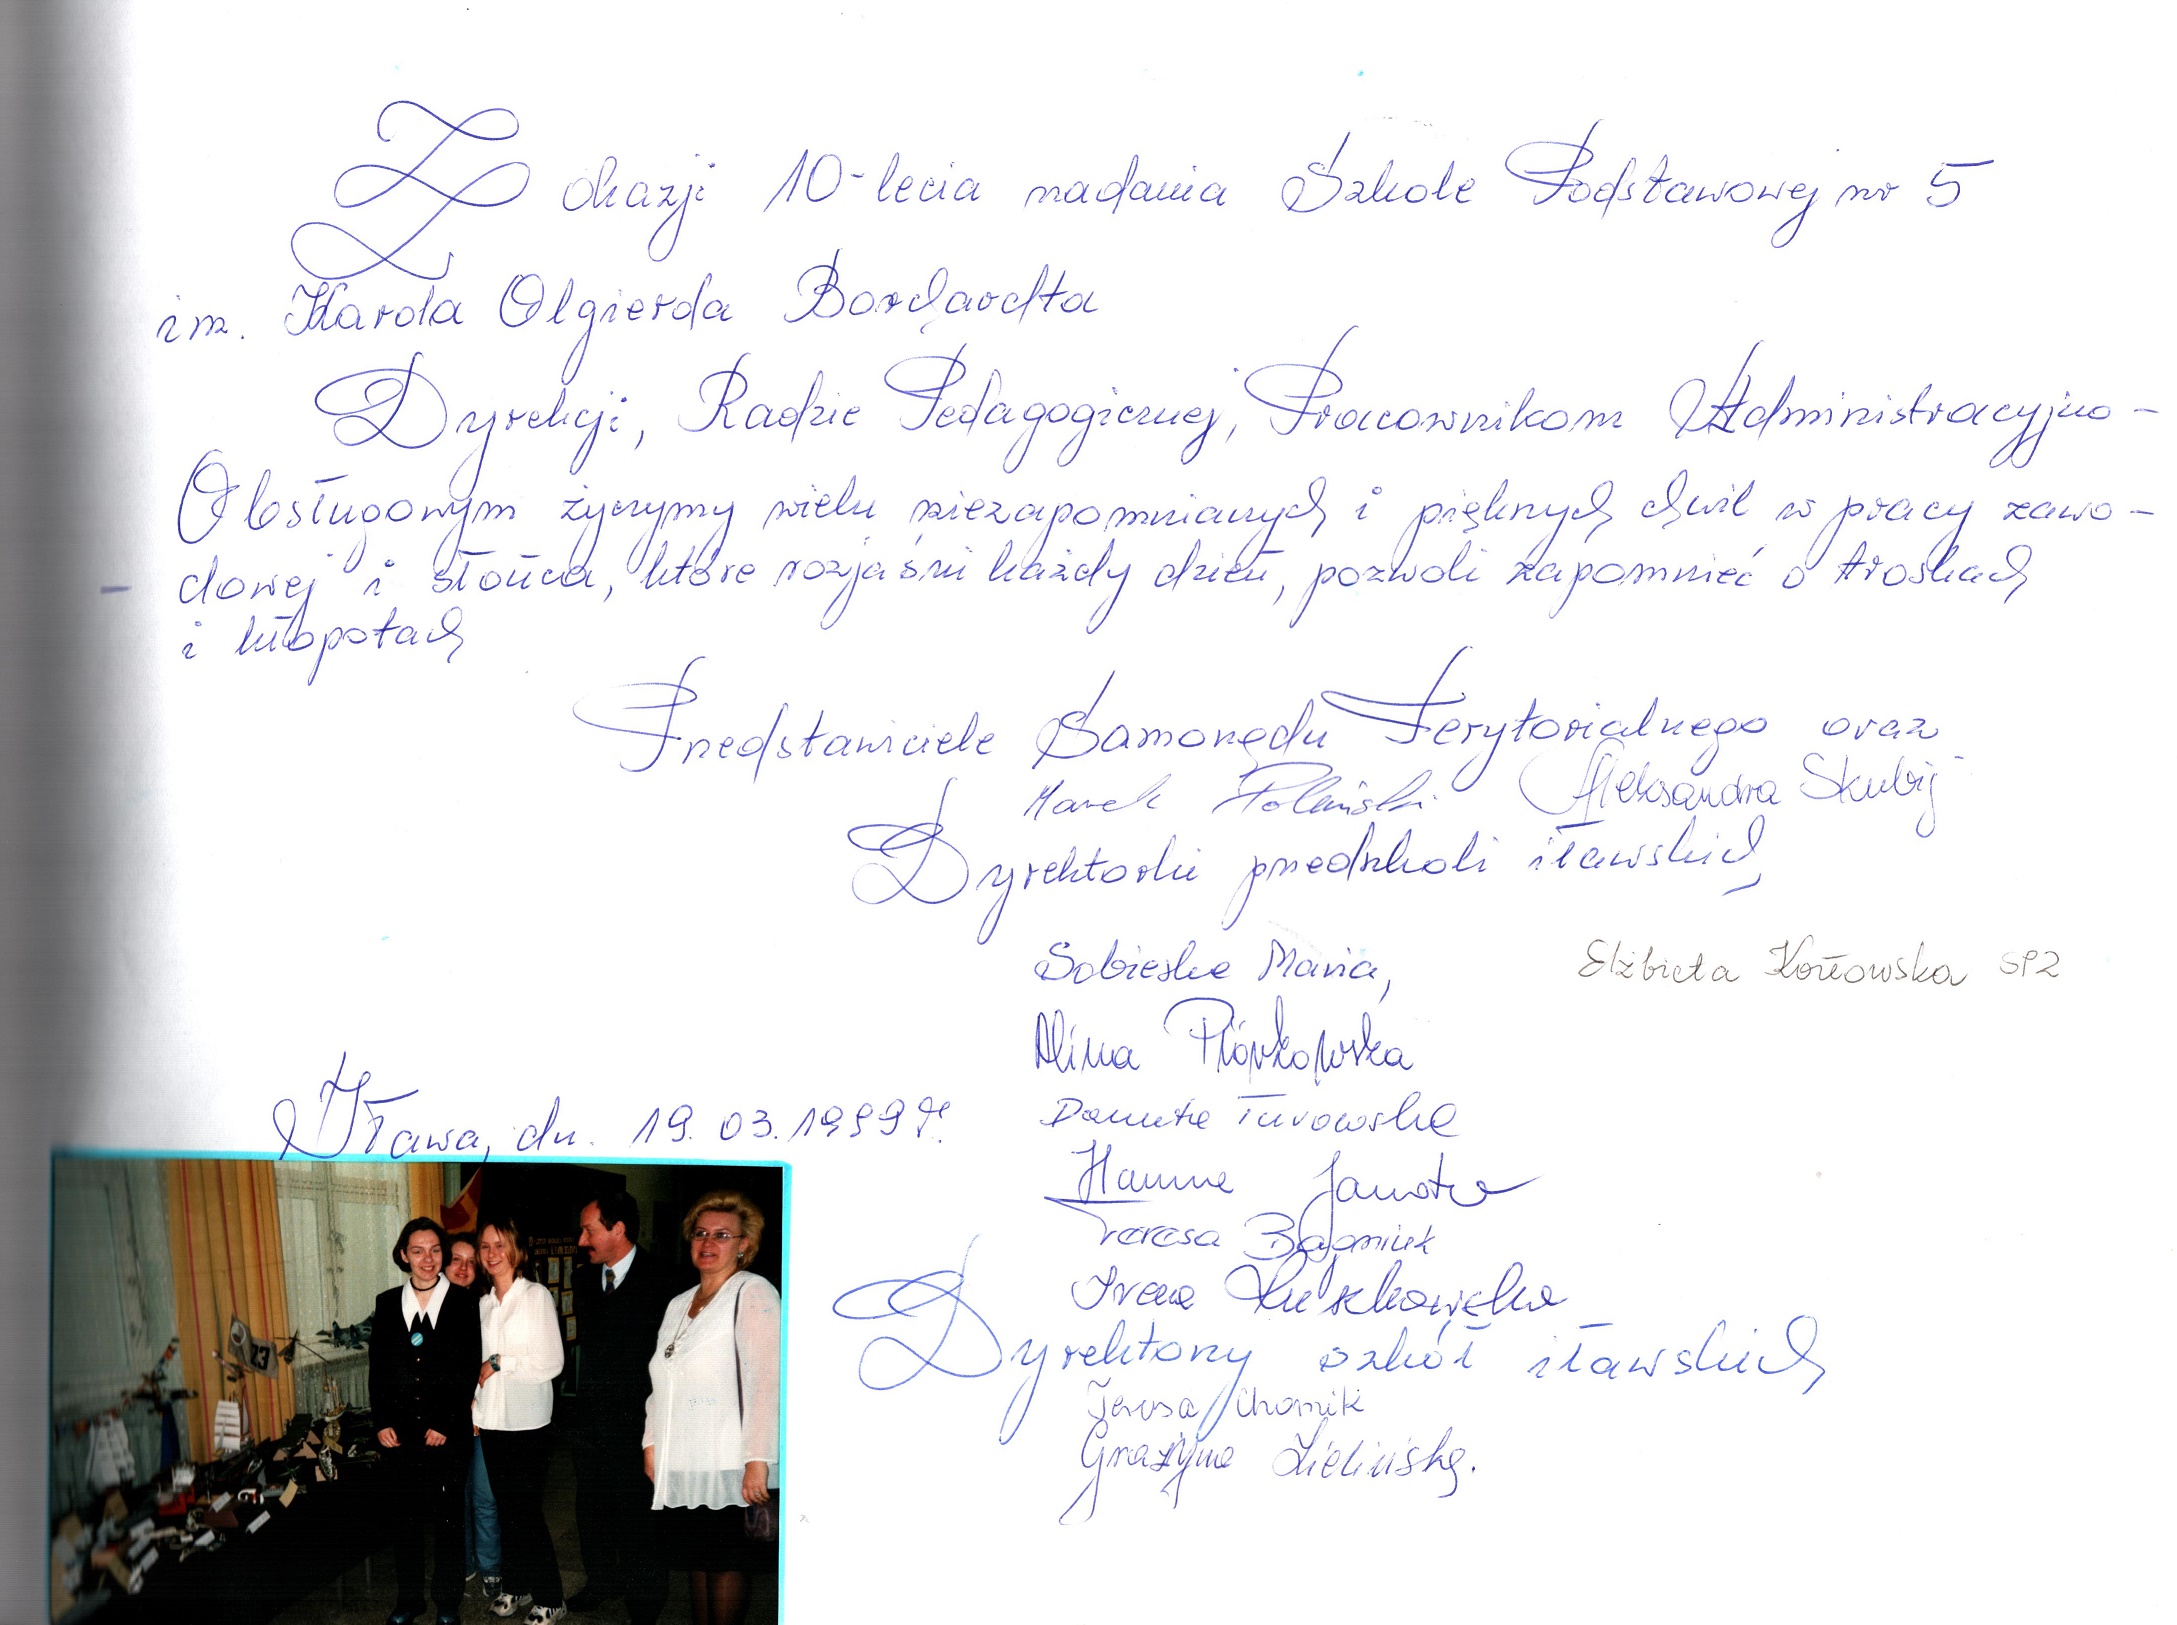 Z okazji 10-lecia nadania Szkole Podstawowej nr 5
im. Karola Olgierda Borchardta
Dyrekcji, Radzie Pedagogicznej, Pracownikom Administracyjno-
Obsługowym życzymy wielu niezapomnianych i pięknych chwil w pracy zawo-
- dowej i słońca, które rozjaśni każdy dzień, pozwoli zapomnieć o troskach
i kłopotach
Przedstawiciele Samorządu Terytorialnego oraz
Marek Polański Aleksandra Skubij
Dyrektorki przedszkoli iławskich
Sobieska Maria, Elżbieta Kozłowska SP2
Alina Piórkowska
Danuta Turowska
Hanna
Teresa
Irena
Iława, dn. 19.03.1999r.
Dyrektorzy szkół iławskich
Teresa Chomik
Grażyna Zielińska.
23